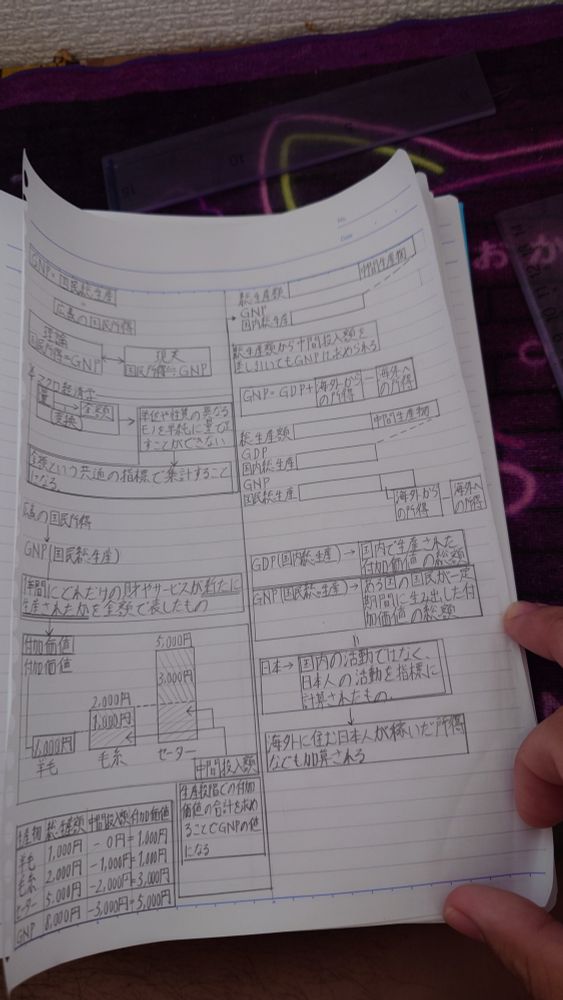 GNP・国民総生産
広義の国民所得
理論
国民所得=GNP
現実
国民所得≒GNP
マクロ経済学
量
金額
変換
単位や性質の異なる
モノを単純に量で足
すことができない
金額という共通の指標で集計すること
になる。
広義の国民所得
GNP(国民総生産)
年間にどれだけの財やサービスが新たに
生産されたかを金額で表したもの
付加価値
付加価値
5,000円
3,000円
2,000円
1,000円
1,000円
羊毛
毛糸
セーター
中間投入額
生産段階での付加
価値の合計を求め
ることでGNPの値
になる
生産物 総生産額 中間投入額 付加価値
羊毛 1,000円 -0円=1,000円
毛糸 2,000円 -1,000円=1,000円
セーター 5,000円 -2,000円=3,000円
GNP 8,000円 -3,000円=5,000円
No.
Date
総生産額
中間生産物
GNP
国内総生産
総生産額から中間投入額を
差し引いてもGNPは求められる
GNP=GDP+海外から
の所得-海外へ
の所得
総生産額
中間生産物
GDP
国内総生産
GNP
国民総生産
海外から
の所得
海外へ
の所得
GDP(国内総生産)→国内で生産された
付加価値の総額
GNP(国民総生産)→ある国の国民が一定
期間に生み出した付
加価値の総額
日本→国内の活動ではなく、
日本人の活動を指標に
計算されたもの。
海外に住む日本人が稼いだ所得
なども加算される
おか